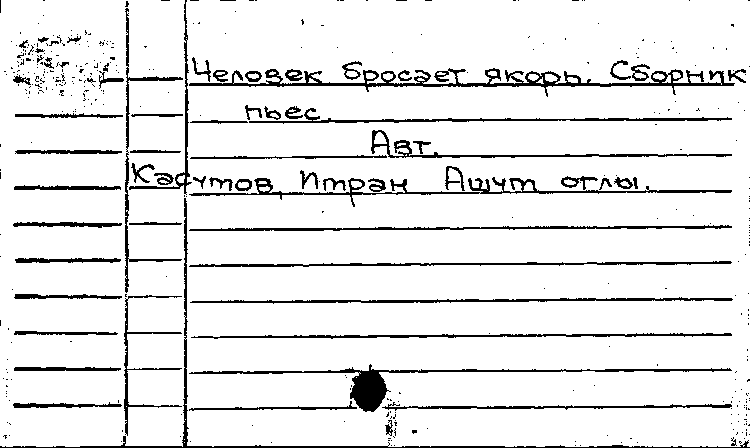 Человек бросает якорь. Сборник
пьес.
Авт.
Касумов, Имран Ашум оглы.